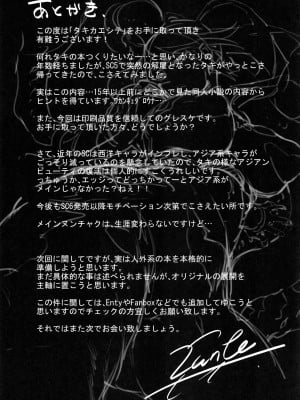 あとがき、
この度は「タキカエシテ」をお手に取って頂き
有難うございます！
何れタキの本つくりたいなーと思い、かなりの
年数経ちましたが、SC6で突然の解禁となったタキがやっとこさ
帰ってきたので、こさえてみました。
実はこの内容…15年以上前にどこかで見た同人小説の内容から
ヒントを得ています。
また、今回は印刷品質を信頼してのグレスケです。
お手に取って頂いた方々、どうでしょうか？
さて、近年のSCは西洋キャラがインフレし、アジア系キャラが
ごっそり減っているのを懸念していたので、タキの様なアジアン
ビューティの復活は個人的にすごくうれしいです。
っちゅうか、エッジってどっちかってーとアジア系が
メインじゃなかった？ねぇ！！
今後もSC6発売以降モチベーション次第でこさえたい所です。
メインヌンチャクは、生涯変わらないですけど…
次回に関してですが、実は人外系の本を本格的に
準備しようと思います。
まだ具体的な事は述べられませんが、オリジナルの展開を
主軸に置こうと思います。
この件に関しては、EntyやFanboxなどでも追加してゆこうと
思いますのでチェックの方宜しくお願い致します。
それではまた次でお会い致しましょう。